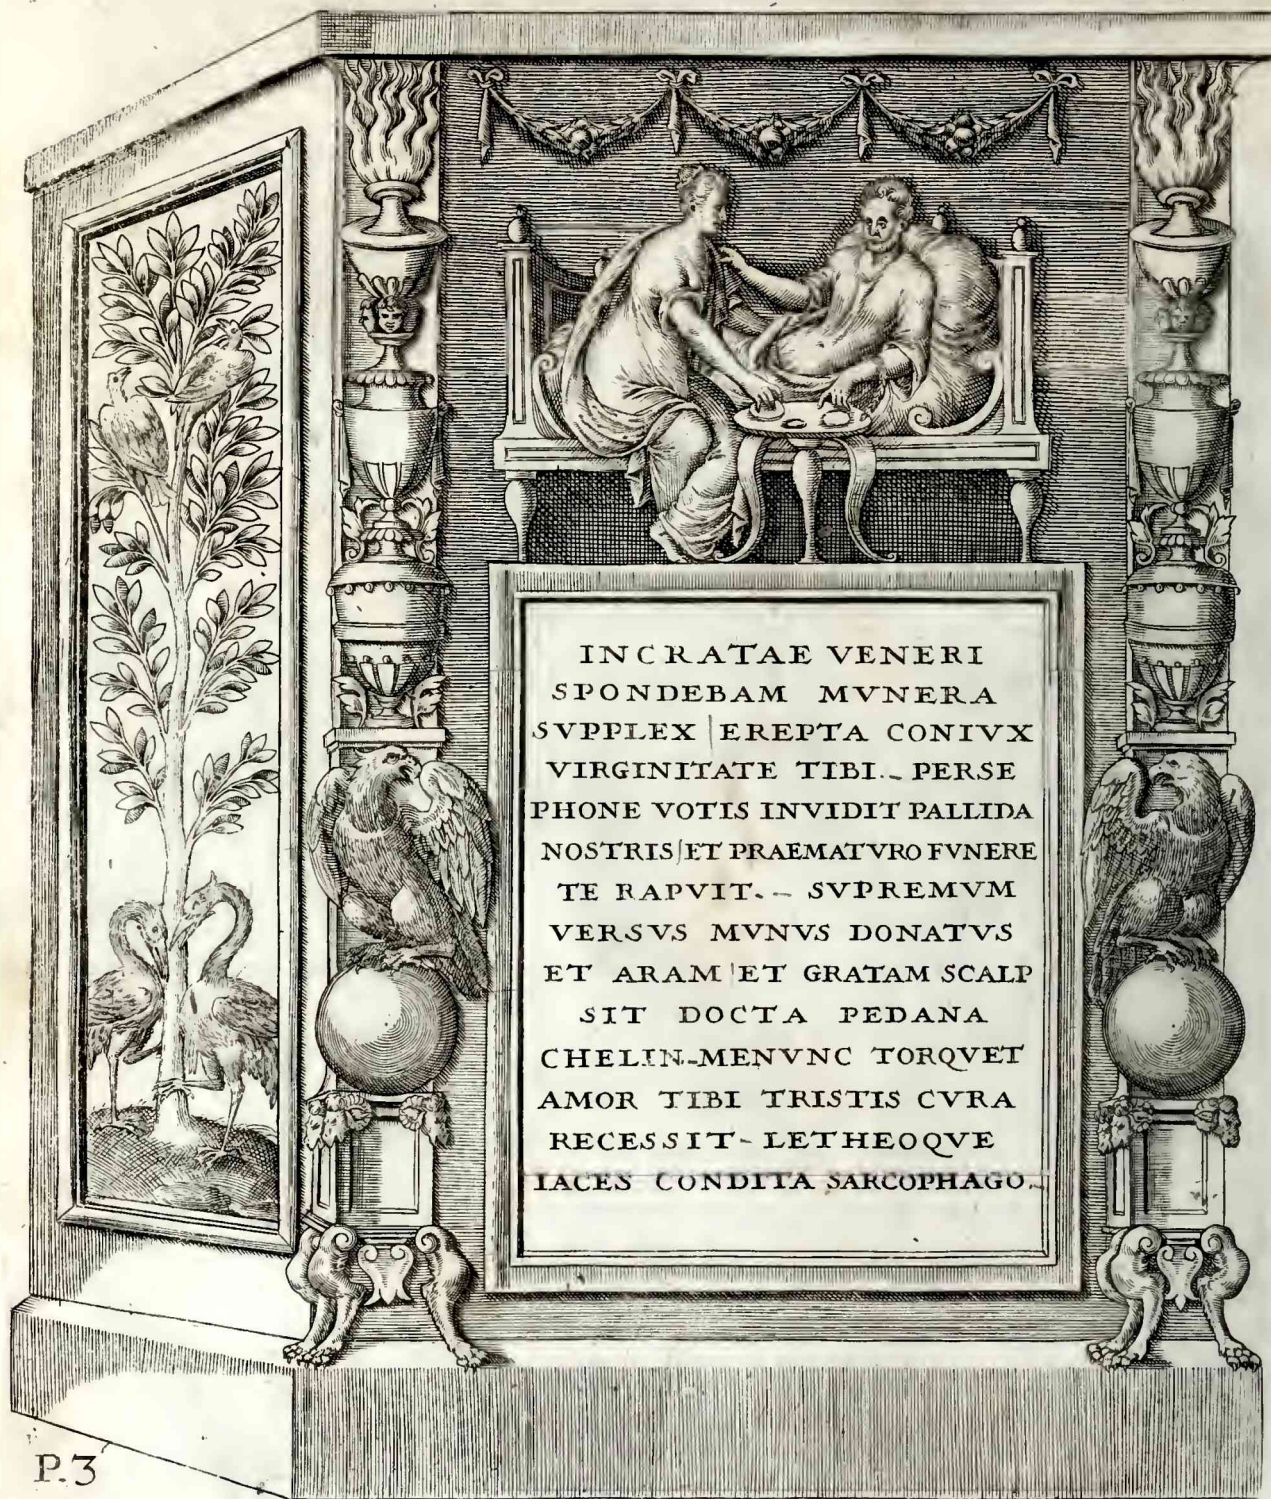 INCRATAE VENERI
SPONDEBAM MVNERA
SVPPLEX | EREPTA CONIVX
VIRGINITATE TIBI.- PERSE
PHONE VOTIS INVIDIT PALLIDA
NOSTRIS | ET PRAEMATVRO FVNERE
TE RAPVIT.- SVPREMVM
VERSVS MVNVS DONATVS
ET ARAM | ET GRATAM SCALP
SIT DOCTA PEDANA
CHELIN-MENVNC TORQVET
AMOR TIBI TRISTIS CVRA
RECESSIT- LETHEOQVE
IACES CONDITA SARCOPHAGO.
P.3